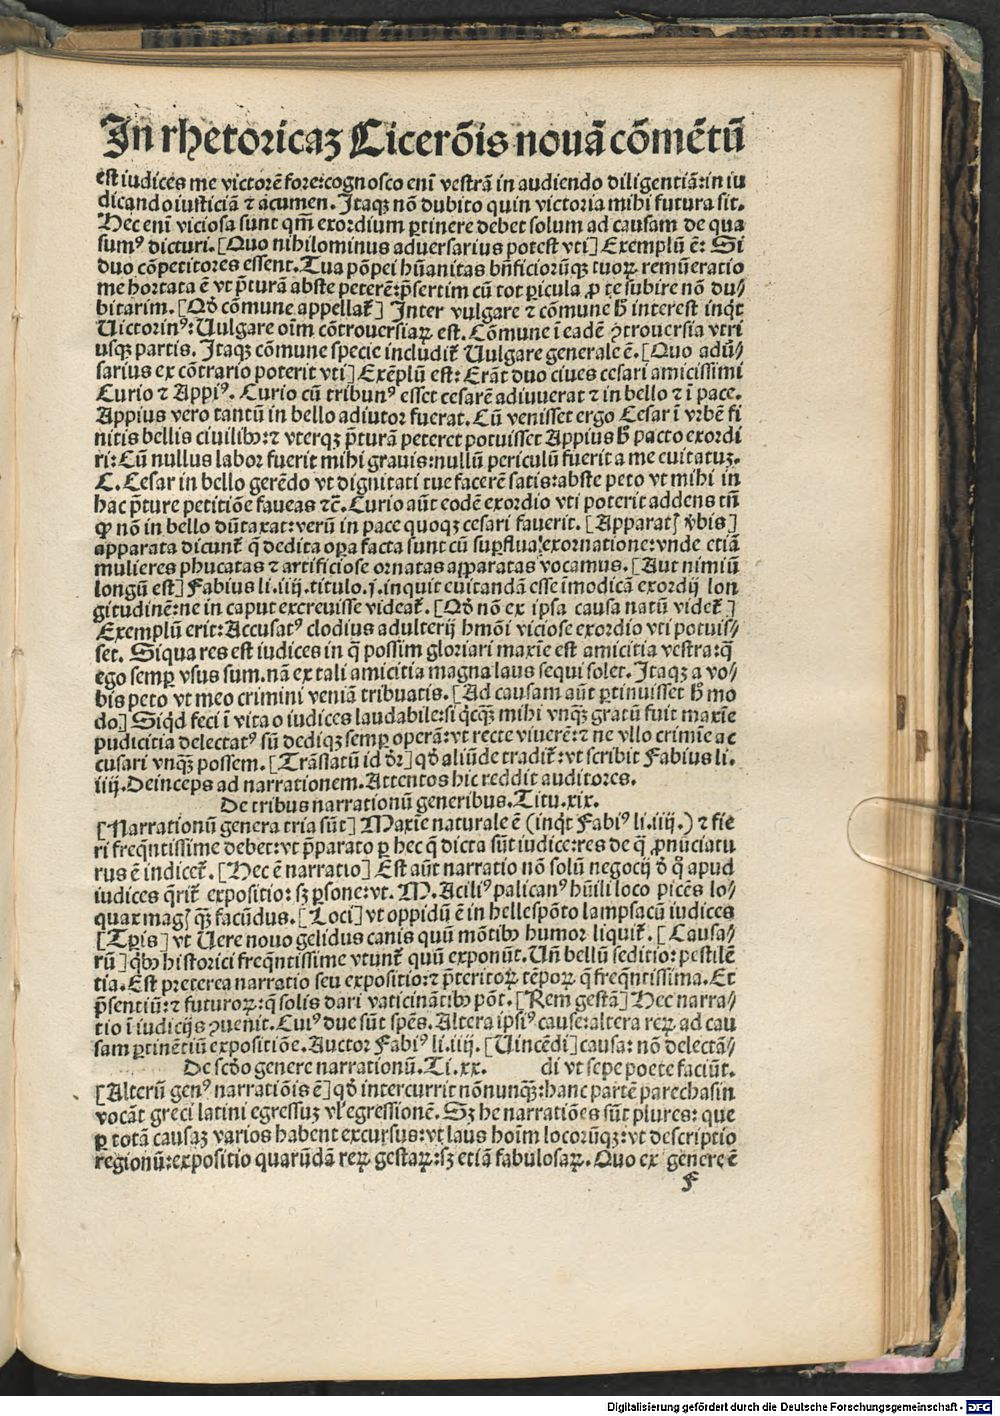 In rhetoricaꝫ Cicerōis nouā cōmētū
est iudices me victorē fore:cognosco eni vestrā in audiendo diligentiā:in iu
dicando iusticiā ⁊ acumen. Itaqꝫ nō dubito quin victoria mihi futura sit.
Hec eni viciosa sunt qm̄ exordium ꝑtinere debet solum ad causam de qua
sumꝰ dicturi. [Quo nihilominus aduersarius potest vti] Exemplū ē: Si
duo cōpetitores essent. Tua pōpei hūanitas bn̄ficiorūqꝫ tuoꝝ remūeratio
me hortata ē vt p̄turā abste peterē:p̄sertim cū tot ꝑicula ꝓ te subire nō du-
bitarim. [Qd̄ cōmune appellat᷑] Inter vulgare ⁊ cōmune h̄ interest inqͥt
Uictorinꝰ: Uulgare oīm cōtrouersiaꝝ est. Cōmune ī eadē ꝯtrouersia vtri
usqꝫ partis. Itaqꝫ cōmune specie includit᷑ Uulgare generale ē. [Quo adu̅-
sarius ex cōtrario poterit vti] Exēplū est: Erāt duo ciues cesari amicissimi
Curio ⁊ Appiꝰ. Curio cū tribunꝰ esset cesarē adiuuerat ⁊ in bello ⁊ ī pace.
Appius vero tantū in bello adiutor fuerat. Cū venisset ergo Cesar ī vrbē fi
nitis bellis ciuilibꝫ:⁊ vterqꝫ p̄turā peteret potuisset Appius h̄ pacto exordi
ri: Cū nullus labor fuerit mihi grauis:nullū periculū fuerit a me euitatuꝫ.
C. Cesar in bello gerēdo vt dignitati tue facerē satis:abste peto vt mihi in
hac p̄ture petitiōe faueas ⁊c̄. Curio aūt eodē exordio vti poterit addens tn̄
ꝙ nō in bello dūtaxat:verū in pace quoqꝫ cesari fauerit. [Apparatꝭ v̄bis]
apparata dicunt᷑ q̄ dedita oꝑa facta sunt cū suꝑflua exornatione:vnde etiā
mulieres phucatas ⁊ artificiose ornatas apparatas vocamus. [Aut nimiū
longū est] Fabius li.iiij.titulo.j.inquit euitandā esse īmodicā exordij lon
gitudinē:ne in caput excreuisse videat᷑. [Qd̄ nō ex ipsa causa natū videt᷑]
Exemplū erit: Accusatꝰ clodius adulterij hmōi viciose exordio vti potuis-
set. Siqua res est iudices in q̄ possim gloriari maxīe est amicitia vestra:q̄
ego semꝑ vsus sum.nā ex tali amicitia magna laus sequi solet. Itaqꝫ a vo-
bis peto vt meo crimini veniā tribuatis. [Ad causam aūt ꝑtinuisset h̄ mo
do] Siqͥd feci ī vita o iudices laudabile:si qͥcqͣꝫ mihi vnqͣꝫ gratū fuit maxīe
pudicitia delectatꝰ sū dediqꝫ semꝑ operā:vt recte viuerē:⁊ ne vllo crimīe ac
cusari vnqͣꝫ possem. [Trāslatū id d̄r] qd̄ aliūde tradit᷑:vt scribit Fabius li.
iiij. Deinceps ad narrationem. Attentos hic reddit auditores.
De tribus narrationū generibus. Titu.xix.
[Narrationū genera tria sūt] Maxīe naturale ē (inqͥt Fabiꝰ li.iiij.) ⁊ fie
ri freqn̄tissime debet:vt p̄parato ꝑ hec q̄ dicta sūt iudice:res de q̄ ꝓnūciatu
rus ē indicet᷑. [Hec ē narratio] Est aūt narratio nō solū negocij d̄ qͦ apud
iudices qͥrit᷑ expositio: sꝫ ꝑsone:vt. M. Aciliꝰ palicanꝰ hūili loco picēs lo-
quax magꝭ qͣꝫ facūdus. [Loci] vt oppidū ē in hellespōto lampsacū iudices
[Tꝑis] vt Uere nouo gelidus canis quū mōtibꝫ humor liquit᷑. [Causa-
rū] qbꝫ historici freqn̄tissime vtunt᷑ quū exponūt. Un̄ bellū seditio: pestilē
tia. Est preterea narratio seu expositio:⁊ p̄teritoꝝ tēpoꝝ q̄ freqn̄tissima. Et
p̄sentiū:⁊ futuroꝝ:q̄ solis dari vaticinātibꝫ pōt. [Rem gestā] Hec narra-
tio ī iudicijs ꝯuenit. Cuiꝰ due sūt spēs. Altera ipsiꝰ cause:altera reꝝ ad cau
sam ꝑtinētiū expositiōe. Auctor Fabiꝰ li.iiij. [Uincēdi] causa: nō delectā-
De scd̄o genere narrationū. Ti.xx. di vt sepe poete faciūt.
[Alterū genꝰ narratiōis ē] qd̄ intercurrit nōnunqͣꝫ:hanc partē parechasin
vocāt greci latini egressuꝫ vl̓ egressionē. Sꝫ he narratiōes sūt plures: que
ꝑ totā causaꝫ varios habent excursus:vt laus hoīm locorūqꝫ:vt descriptio
regionū:expositio quarūdā reꝝ gestaꝝ:sꝫ etiā fabulosaꝝ. Quo ex genere ē
f
Digitalisierung gefördert durch die Deutsche Forschungsgemeinschaft - DFG